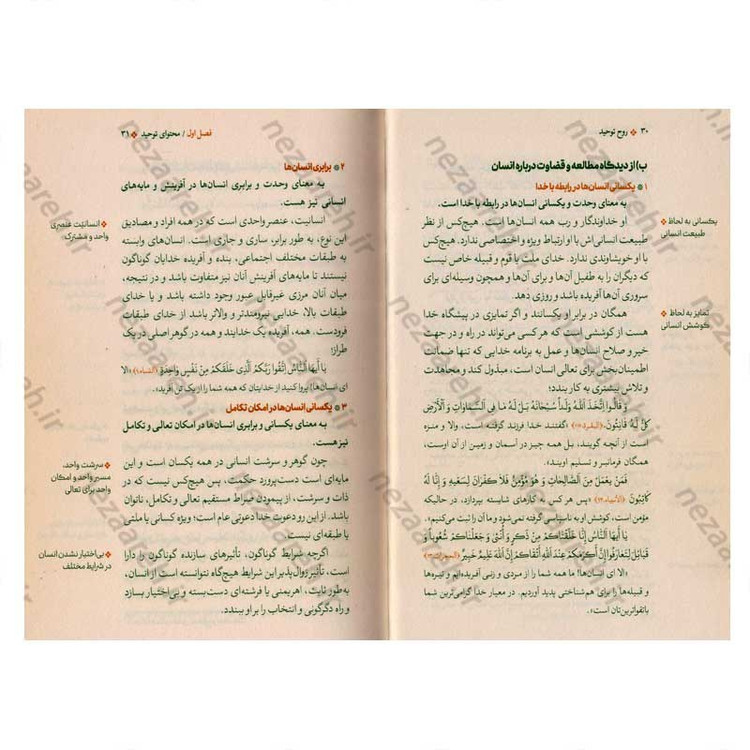 ۳۰ روح توحید
ب) از دیدگاه مطالعه و قضاوت درباره انسان
۱ یکسانی انسان‌ها در رابطه با خدا
به معنای وحدت و یکسانی انسان‌ها در رابطه با خدا است.
یکسانی به لحاظ
طبیعت انسانی
او خداوندگار و رب همه انسان‌ها است. هیچ‌کس از نظر
طبیعت انسانی‌اش با او ارتباط ویژه و اختصاصی ندارد. هیچ‌کس
با او خویشاوندی ندارد. خدای ملت یا قوم و قبیله خاص نیست
که دیگران را به طفیل آن‌ها و برای آن‌ها و همچون وسیله‌ای برای
سروری آن‌ها آفریده باشد و روزی دهد.
تمایز به لحاظ
کوشش انسانی
همگان در برابر او یکسانند و اگر تمایزی در پیشگاه خدا
هست از کوششی است که هر کسی می‌تواند در راه و در جهت
خیر و صلاح انسان‌ها و عمل به برنامه خدایی که تنها ضمانت
اطمینان‌بخش برای تعالی انسان است، مبذول کند و مجاهدت
و تلاش بیشتری به کار بندد؛
وَ قالُوا اتَّخَذَ اللَّهُ وَلَداً سُبْحانَهُ بَلْ لَهُ ما فِی السَّماواتِ وَ الْأَرْضِ
کُلٌّ لَهُ قانِتُونَ. (البقره/۱۱۶) «گفتند خدا فرزند گرفته است، والا و منزه
است از آنچه گویند، بل همه چیز در آسمان و زمین از آن اوست،
همگان فرمانبر و تسلیم اویند».
فَمَنْ یَعْمَلْ مِنَ الصَّالِحاتِ وَ هُوَ مُؤْمِنٌ فَلا کُفْرانَ لِسَعْیِهِ وَ إِنَّا لَهُ
کاتِبُونَ (الأنبیاء/۹۴) «پس هر کس به کارهای شایسته بپردازد، در حالیکه
مؤمن است، کوشش او به ناسپاسی گرفته نمی‌شود و ما آن را ثبت می‌کنیم».
یا أَیُّهَا النَّاسُ إِنَّا خَلَقْناکُمْ مِنْ ذَکَرٍ وَ أُنْثی وَ جَعَلْناکُمْ شُعُوباً وَ
قَبائِلَ لِتَعارَفُوا إِنَّ أَکْرَمَکُمْ عِنْدَ اللَّهِ أَتْقاکُمْ إِنَّ اللَّهَ عَلِیمٌ خَبِیرٌ (الحجرات/۱۳)
«الا ای انسان‌ها! ما همه شما را از مردی و زنی آفریده‌ایم و تیره‌ها
و قبیله‌ها را برای هم‌شناختی پدید آوردیم. در معیار خدا گرامی‌ترین شما
باتقواترین‌تان است».
فصل اول / محتوای توحید ۳۱
۲ برابری انسان‌ها
به معنای وحدت و برابری انسان‌ها در آفرینش و مایه‌های
انسانی نیز هست.
انسانیت عنصری
واحد و مشترک
انسانیت، عنصر واحدی است که در همه افراد و مصادیق
این نوع، به طور برابر، ساری و جاری است. انسان‌های وابسته
به طبقات مختلف اجتماعی، بنده و آفریده خدایان گوناگون
نیستند تا مایه‌های آفرینش آنان نیز متفاوت باشد و در نتیجه،
میان آنان مرزی غیرقابل عبور وجود داشته باشد و یا خدای
طبقات بالا، خدایی نیرومندتر و والاتر باشد از خدای طبقات
فرودست. همه، آفریده یک خدایند و همه در گوهر اصلی در یک
طراز؛
یا أَیُّهَا النَّاسُ اتَّقُوا رَبَّکُمُ الَّذِی خَلَقَکُمْ مِنْ نَفْسٍ واحِدَةٍ (النساء/۱) «الا
ای انسان‌ها! پروا کنید از خدایتان که همه شما را از یک تن آفرید».
۳ یکسانی انسان‌ها در امکان تکامل
به معنای یکسانی و برابری انسان‌ها در امکان تعالی و تکامل
نیز هست.
سرشت واحد،
مسیر واحد و امکان
واحد برای تعالی
چون گوهر و سرشت انسانی در همه یکسان است و این
مایه‌ای است دست‌پرورد حکمت، پس هیچ‌کس نیست که در
ذات و سرشت، از پیمودن صراط مستقیم تعالی و تکامل، ناتوان
باشد. از این رو دعوت خدا دعوتی عام است؛ ویژه کسانی یا ملتی
یا طبقه‌ای نیست.
بی‌اختیار نشدن انسان
در شرایط مختلف
اگرچه شرایط گوناگون، تأثیرهای سازنده گوناگون را دارا
است، تأثیر زوال‌پذیر این شرایط هیچ‌گاه نتوانسته است از انسان،
به‌طور ثابت، اهریمنی یا فرشته‌ای دست‌بسته و بی‌اختیار بسازد
و راه دگرگونی و انتخاب را بر او ببندد.
nezaareh.ir